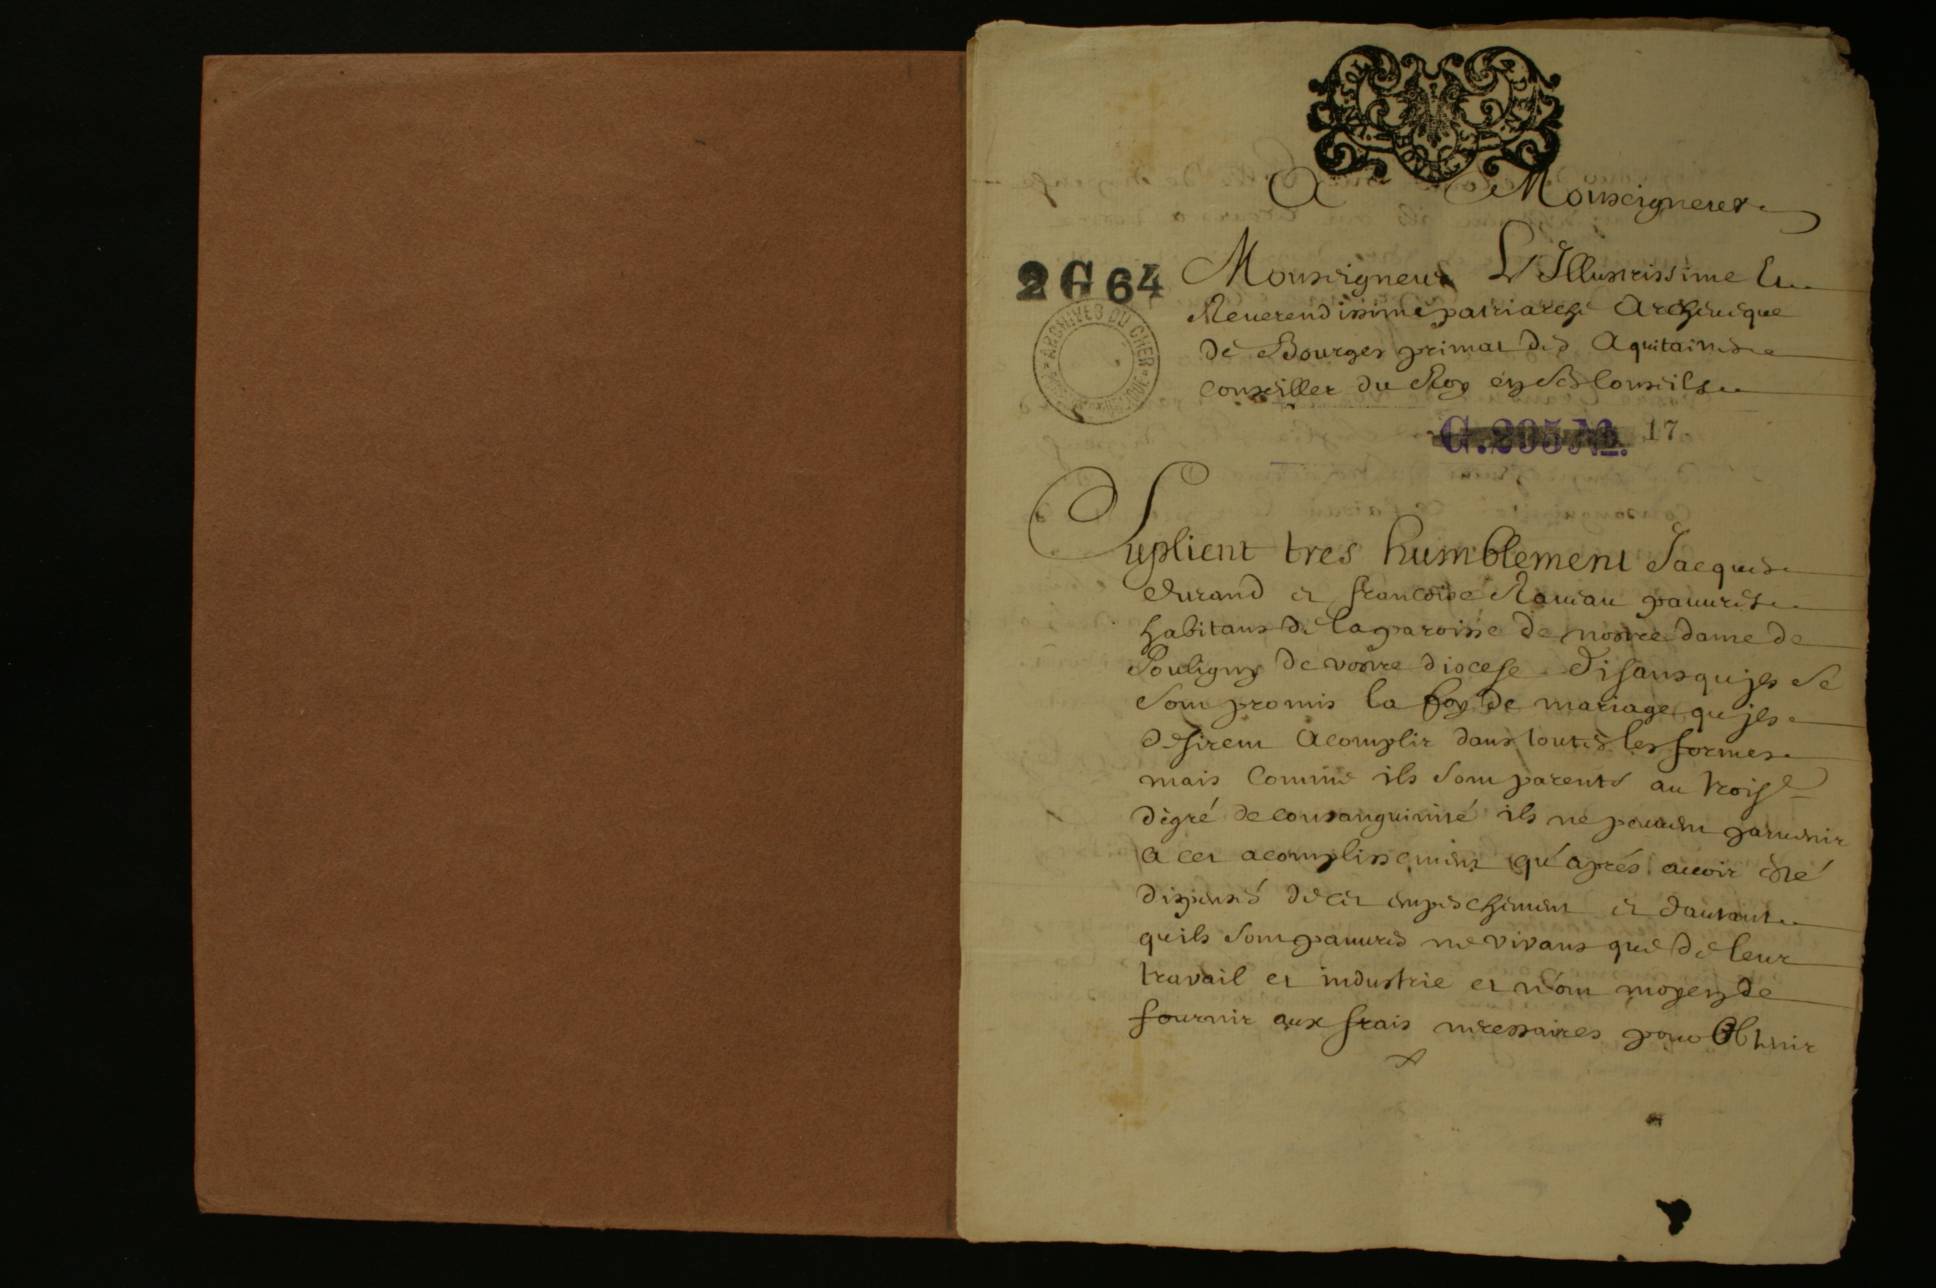 A Monseigneur
2 G 64
Monseigneur L'Illustrissime Et
Reuerendissime patriarche Archeuesque
de Bourges primat des Aquitaines
conseiller du Roy en ses Conseils
ARCHIVES DU CHER
G. 295 No. 17
Suplient tres humblement Jacques
durand et francoise pauures
habitans de la paroisse de nostre dame de
Pouligny de vostre diocese Disans qujls se
sont promis la foy de mariage qujls
desirent Acomplir dans toutes les formes
mais Comme ils sont parents au trois.e
dégré de consanguinité ils ne peuuent paruenir
a cet acomplissement qu'aprés auoir esté
dispensé de cet empeschement et dautant
quils sont pauures ne vivans que de leur
travail et industrie et n'ont moyen de
fournir aux frais necessaires pour Obtenir